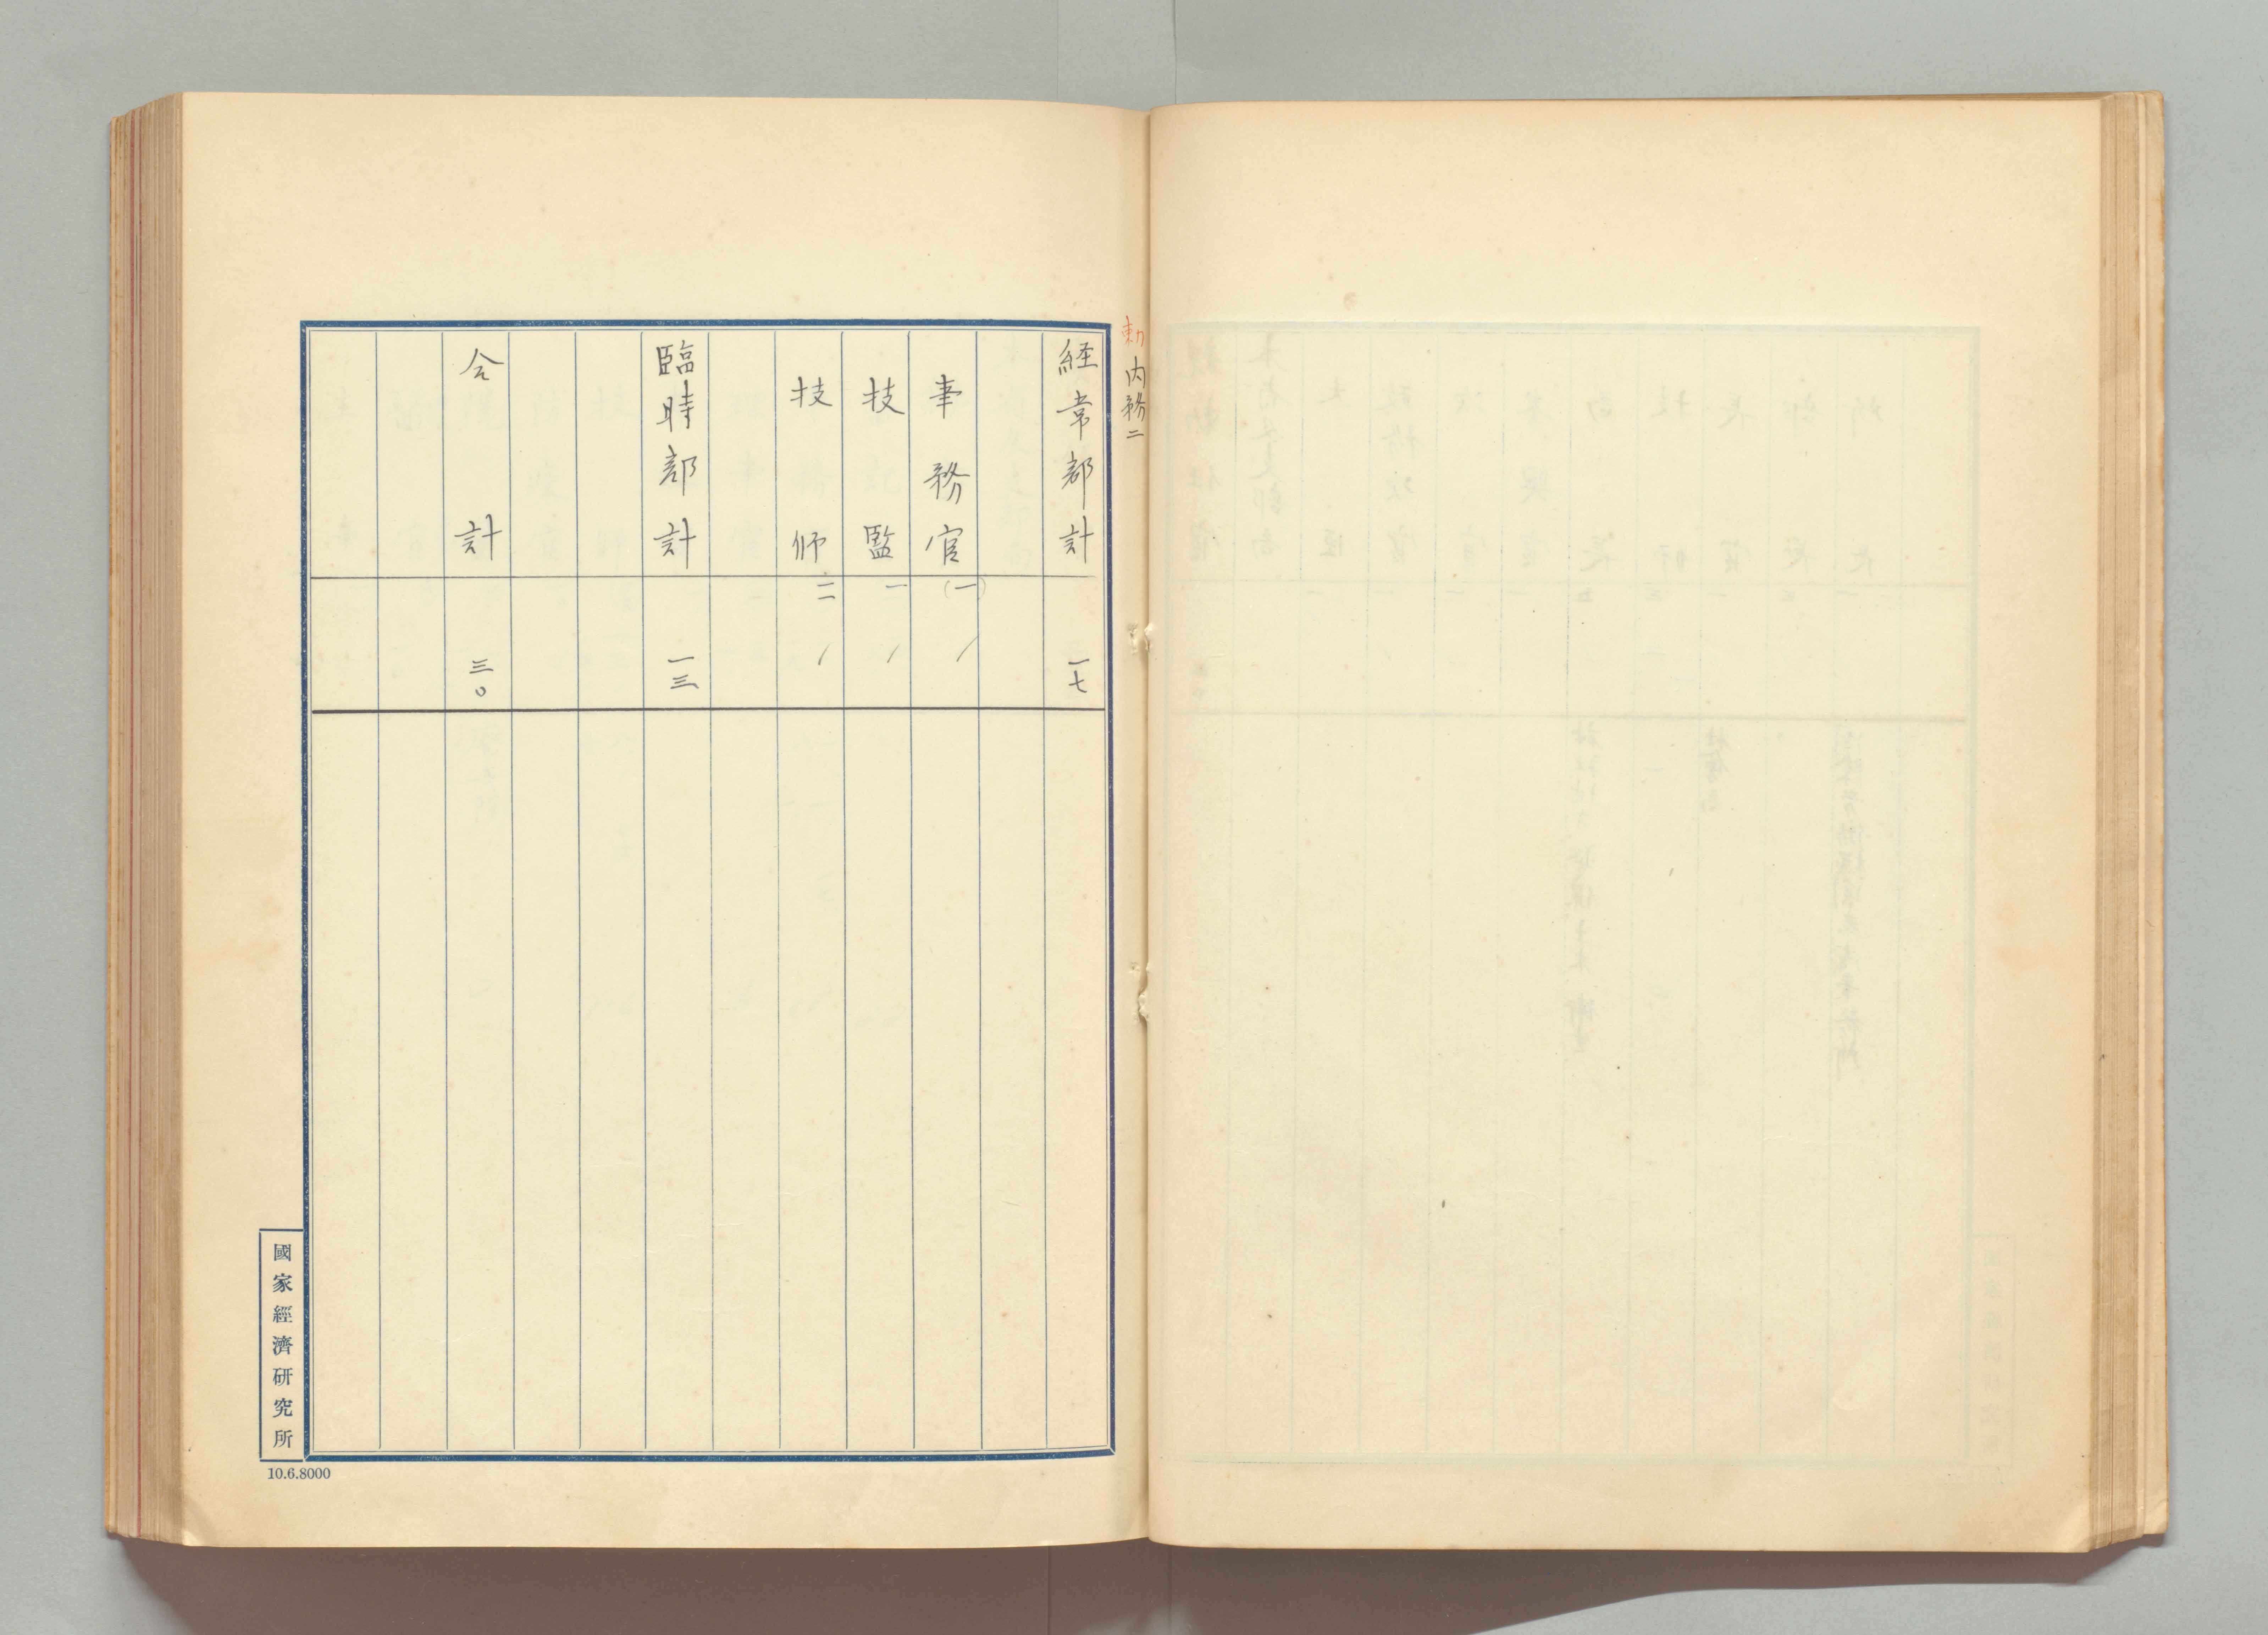 勅 内務二
経常部計 一七
事務官 (一) /
技監 一 /
技師 二 /
臨時部計 一三
合計 三〇
國家經濟研究所
10.6.8000